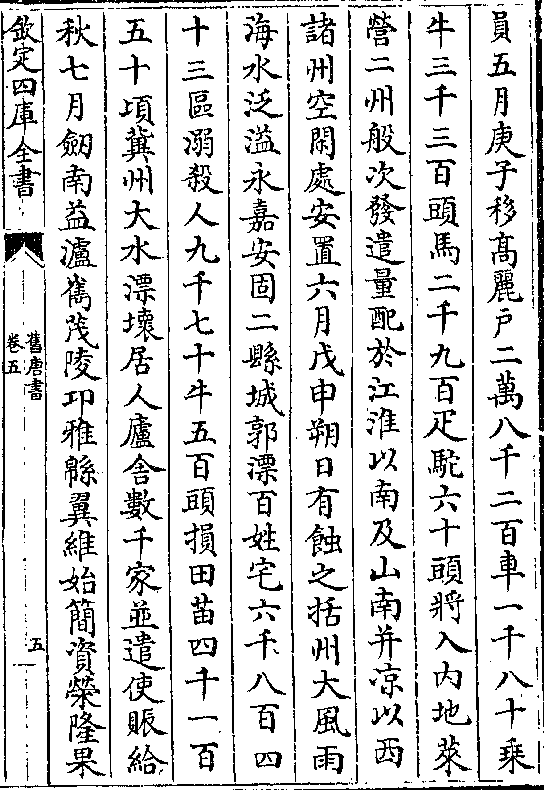 員五月庚子移高麗戶二萬八千二百車一千八十乗
牛三千三百頭馬二千九百疋駝六十頭將入内地萊
營二州般次發遣量配於江淮以南及山南并凉以西
諸州空閑處安置六月戊申朔日有蝕之括州大風雨
海水泛溢永嘉安固二縣城郭漂百姓宅六千八百四
十三區溺殺人九千七十牛五百頭損田苗四千一百
五十頃冀州大水漂壞居人廬舍數千家並遣使賑給
秋七月劒南益瀘嶲茂陵邛雅緜翼維始簡資榮隆果
欽定四庫全書
舊唐書
卷五
五